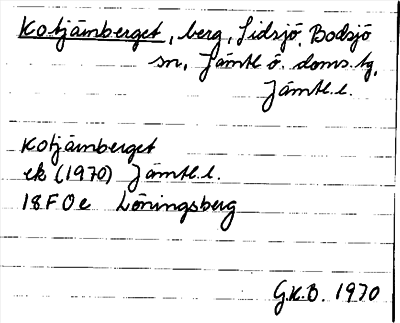 Kotjärnberget, berg, Lidsjö, Bodsjö
sn, Jämtl. ö. doms. tg,
Jämtl. l.
Kotjärnberget
ek (1970) Jämtl. l.
18F0e Löningsberg
G.K.B. 1970